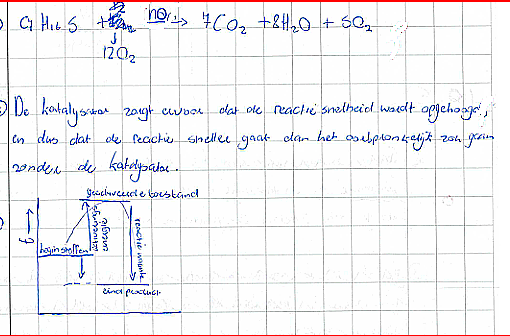 C7H16S + 12O2 → 7CO2 + 8H2O + SO2
De katalysator zorgt ervoor dat de reactie snelheid wordt opgehoogd,
en dus dat de reactie sneller gaat dan het oorspronkelijk zou gaan
zonder de katalysator.
geactiveerde toestand
beginstoffen
activerings energie
reactie warmte
E →
eind product